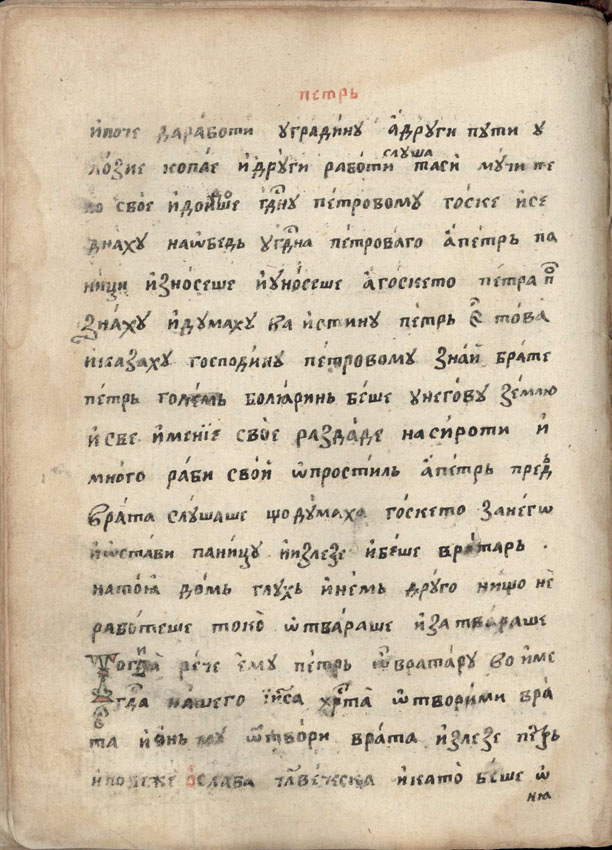 петрь
ꙇпоче дарабѡти уградину адруги пути у
лозие копае ꙇдруги работи слуша тасꙇ мучи те
ло свое ꙇдоꙇдоше гдну петровому госке ꙇсе
днаху наѡбедь угдна петроваго апетрь па
ници ꙇзносеше ꙇуносеше агоскето петра поз
знаху ꙇдумаху ва ꙇстину петрь є това
ꙇказаху господину петровому знаꙇ брате
петрь големь болꙗринь беше унегову землю
ꙇсве ꙇмение свое раздаде насироти ꙇ
много раби своꙇ ѡпростиль апетрь предь
врата слушаше що думаха госкето занегѡ
ꙇѡстави паницу ꙇꙇзлезе ꙇбеше вратарь .
натоꙗ домь глухь ꙇнемь друго нищо не
работеше токо ѿвараше ꙇзатвараше
Тогꙇва рече ему петрь ѿвратару во ꙇме
гда нашего ꙇиса хрта ѿвори ми вра
та ꙇѡнь му ѿвори врата ꙇзлезе петрь
ꙇпобеже ѡслаба ꙇкато беше ѡ
ню